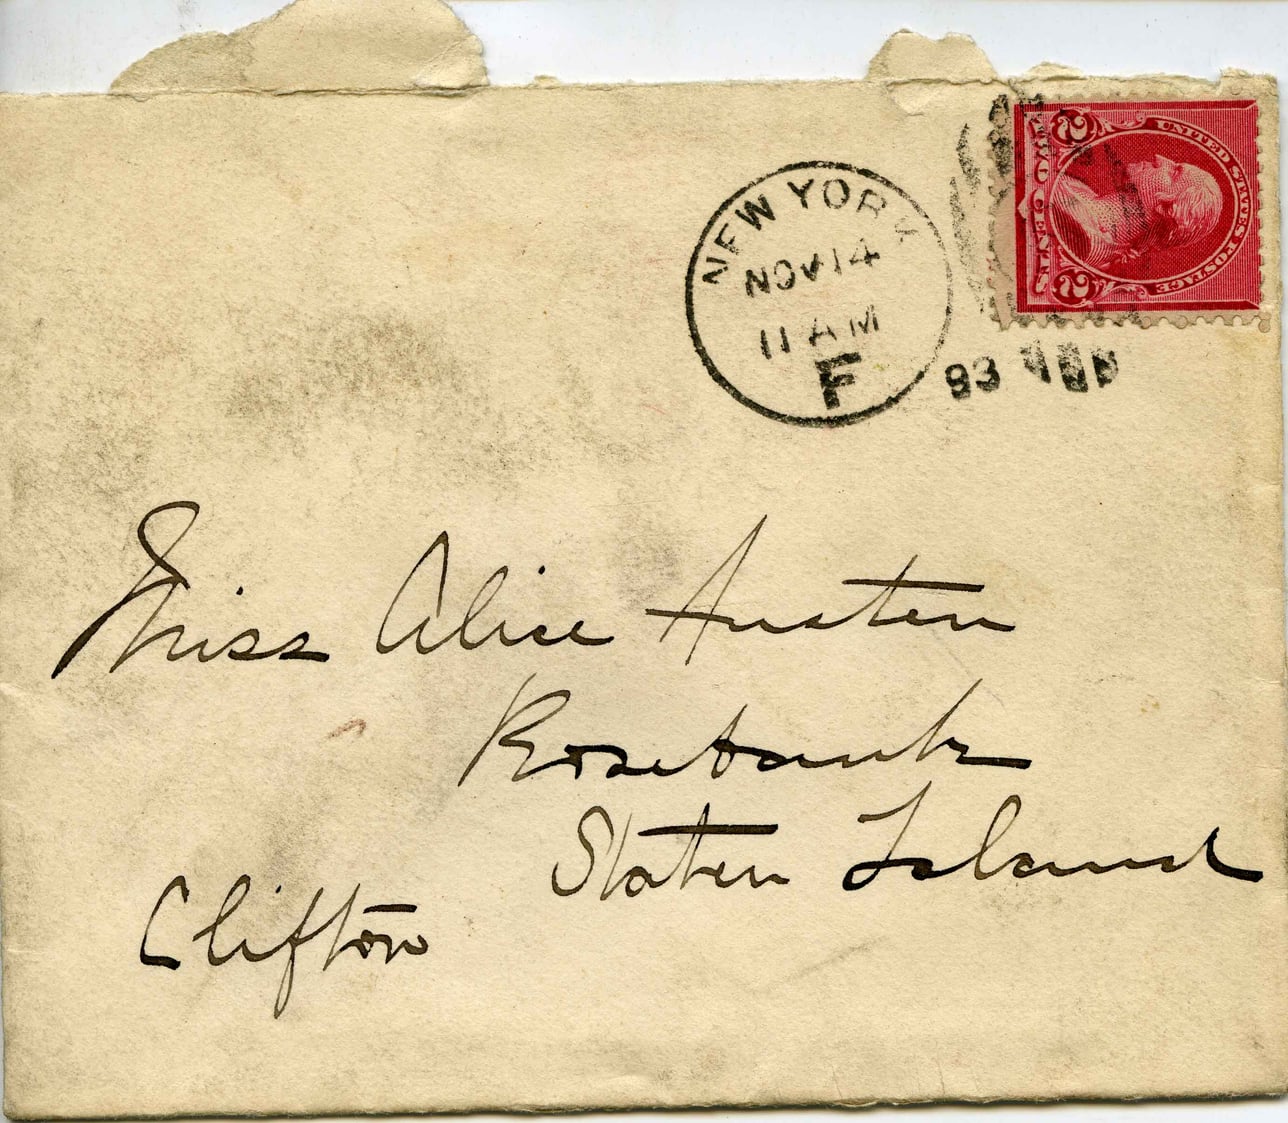 NEW YORK
NOV 14
11 AM
F
93
UNITED STATES POSTAGE
2 2
TWO CENTS
Miss Alice Austen
Rosebank
Staten Island
Clifton